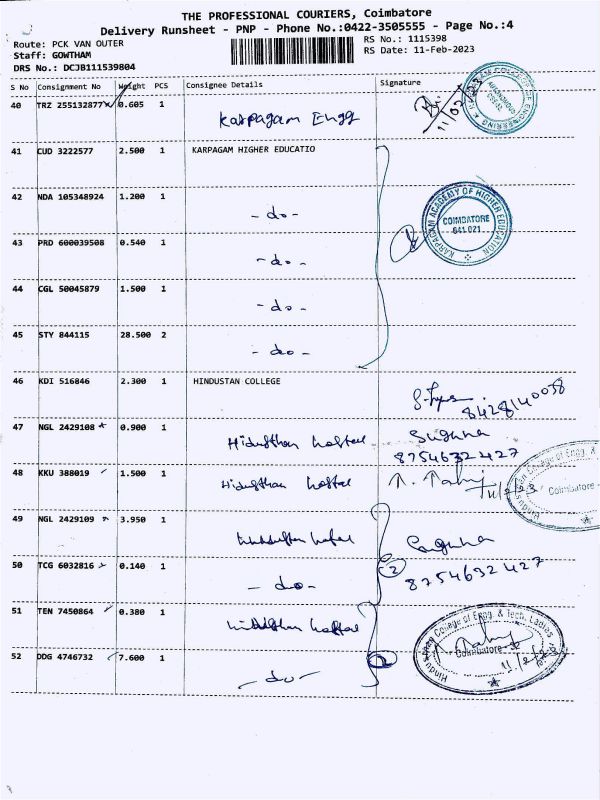 THE PROFESSIONAL COURIERS, Coimbatore
Delivery Runsheet - PNP - Phone No.:0422-3505555 - Page No.:4
Route: PCK VAN OUTER
RS No.: 1115398
Staff: GOWTHAM
RS Date: 11-Feb-2023
DRS No.: DCJB111539804
S No Consignment No Weight PCS Consignee Details Signature
40 TRZ 255132877 0.605 1 Karpagam Engg 11/02/23
41 CUD 3222577 2.500 1 KARPAGAM HIGHER EDUCATIO
42 NDA 105348924 1.200 1 - do -
KARPAGAM ACADEMY OF HIGHER EDUCATION
COIMBATORE
641 021
43 PRD 600039508 0.540 1 - do -
44 CGL 50045879 1.500 1 - do -
45 STY 844115 28.500 2 - do -
46 KDI 516846 2.300 1 HINDUSTAN COLLEGE
8428140058
47 NGL 2429108 0.900 1 Hidusthan hostel Suguna
8754632427
48 KKU 388019 1.500 1 Hidusthan hostel
Hindusthan College of Engg. &
Coimbatore -
49 NGL 2429109 3.950 1 Suguna
50 TCG 6032816 0.140 1 - do - 2 8754632427
51 TEN 7450864 0.380 1
Hindusthan College of Engg. & Tech. Ladies
Coimbatore
52 DDG 4746732 7.600 1 - do - 11/2/23